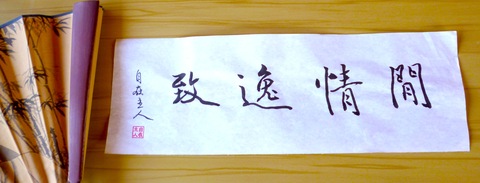 閒情逸致
自在主人